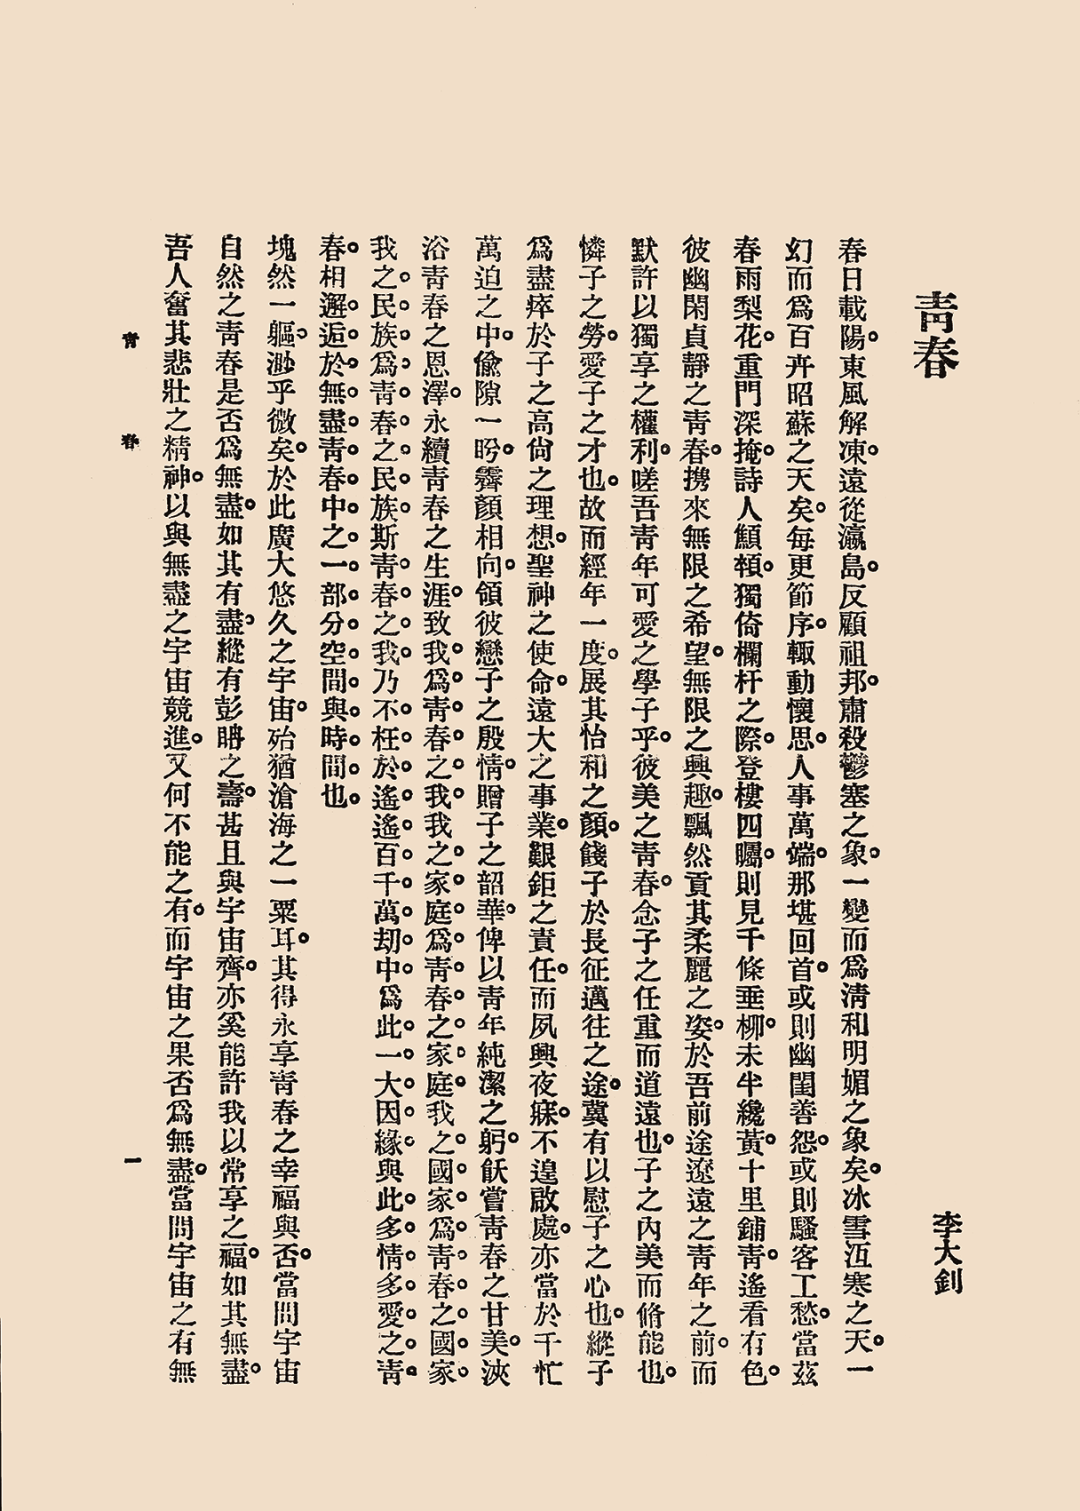 靑春
李大釗
春日載陽。東風解凍。遠從瀛島。反顧祖邦。肅殺鬱塞之象。一變而爲淸和明媚之象矣。冰雪沍寒之天。一
幻而爲百卉昭蘇之天矣。每更節序。輒動懷思。人事萬端。那堪回首。或則幽閨善怨。或則騷客工愁。當茲
春雨梨花。重門深掩。詩人顦顇。獨倚欄杆之際。登樓四矚。則見千條垂柳。未半纔黃。十里鋪靑。遙看有色。
彼幽閑貞靜之靑春。携來無限之希望。無限之興趣。飄然貢其柔麗之姿。於吾前途遼遠之靑年之前。而
默許以獨享之權利。嗟吾靑年可愛之學子乎。彼美之靑春。念子之任重而道遠也。子之內美而脩能也。
憐子之勞。愛子之才也。故而經年一度。展其怡和之顏。餞子於長征邁往之途。冀有以慰子之心也。縱子
爲盡瘁於子之高尙之理想。聖神之使命。遠大之事業。艱鉅之責任。而夙興夜寐。不遑啟處。亦當於千忙
萬迫之中。偸隙一盻。霽顏相向。領彼戀子之殷情。贈子之韶華。俾以靑年純潔之躬。飫嘗靑春之甘美。浹
浴靑春之恩澤。永續靑春之生涯。致我爲靑春之我。我之家庭爲靑春之家庭。我之國家爲靑春之國家。
我之民族爲靑春之民族。斯靑春之我。乃不枉於遙遙百千萬劫中。爲此一大因緣。與此多情多愛之靑
春。相邂逅於無盡靑春中之一部分空間與時間也。
塊然一軀。渺乎微矣。於此廣大悠久之宇宙。殆猶滄海之一粟耳。其得永享靑春之幸福與否。當問宇宙
自然之靑春是否爲無盡。如其有盡。縱有彭聃之壽。甚且與宇宙齊。亦奚能許我以常享之福。如其無盡。
吾人奮其悲壯之精神。以與無盡之宇宙競進。又何不能之有。而宇宙之果否爲無盡。當問宇宙之有無
靑春
一